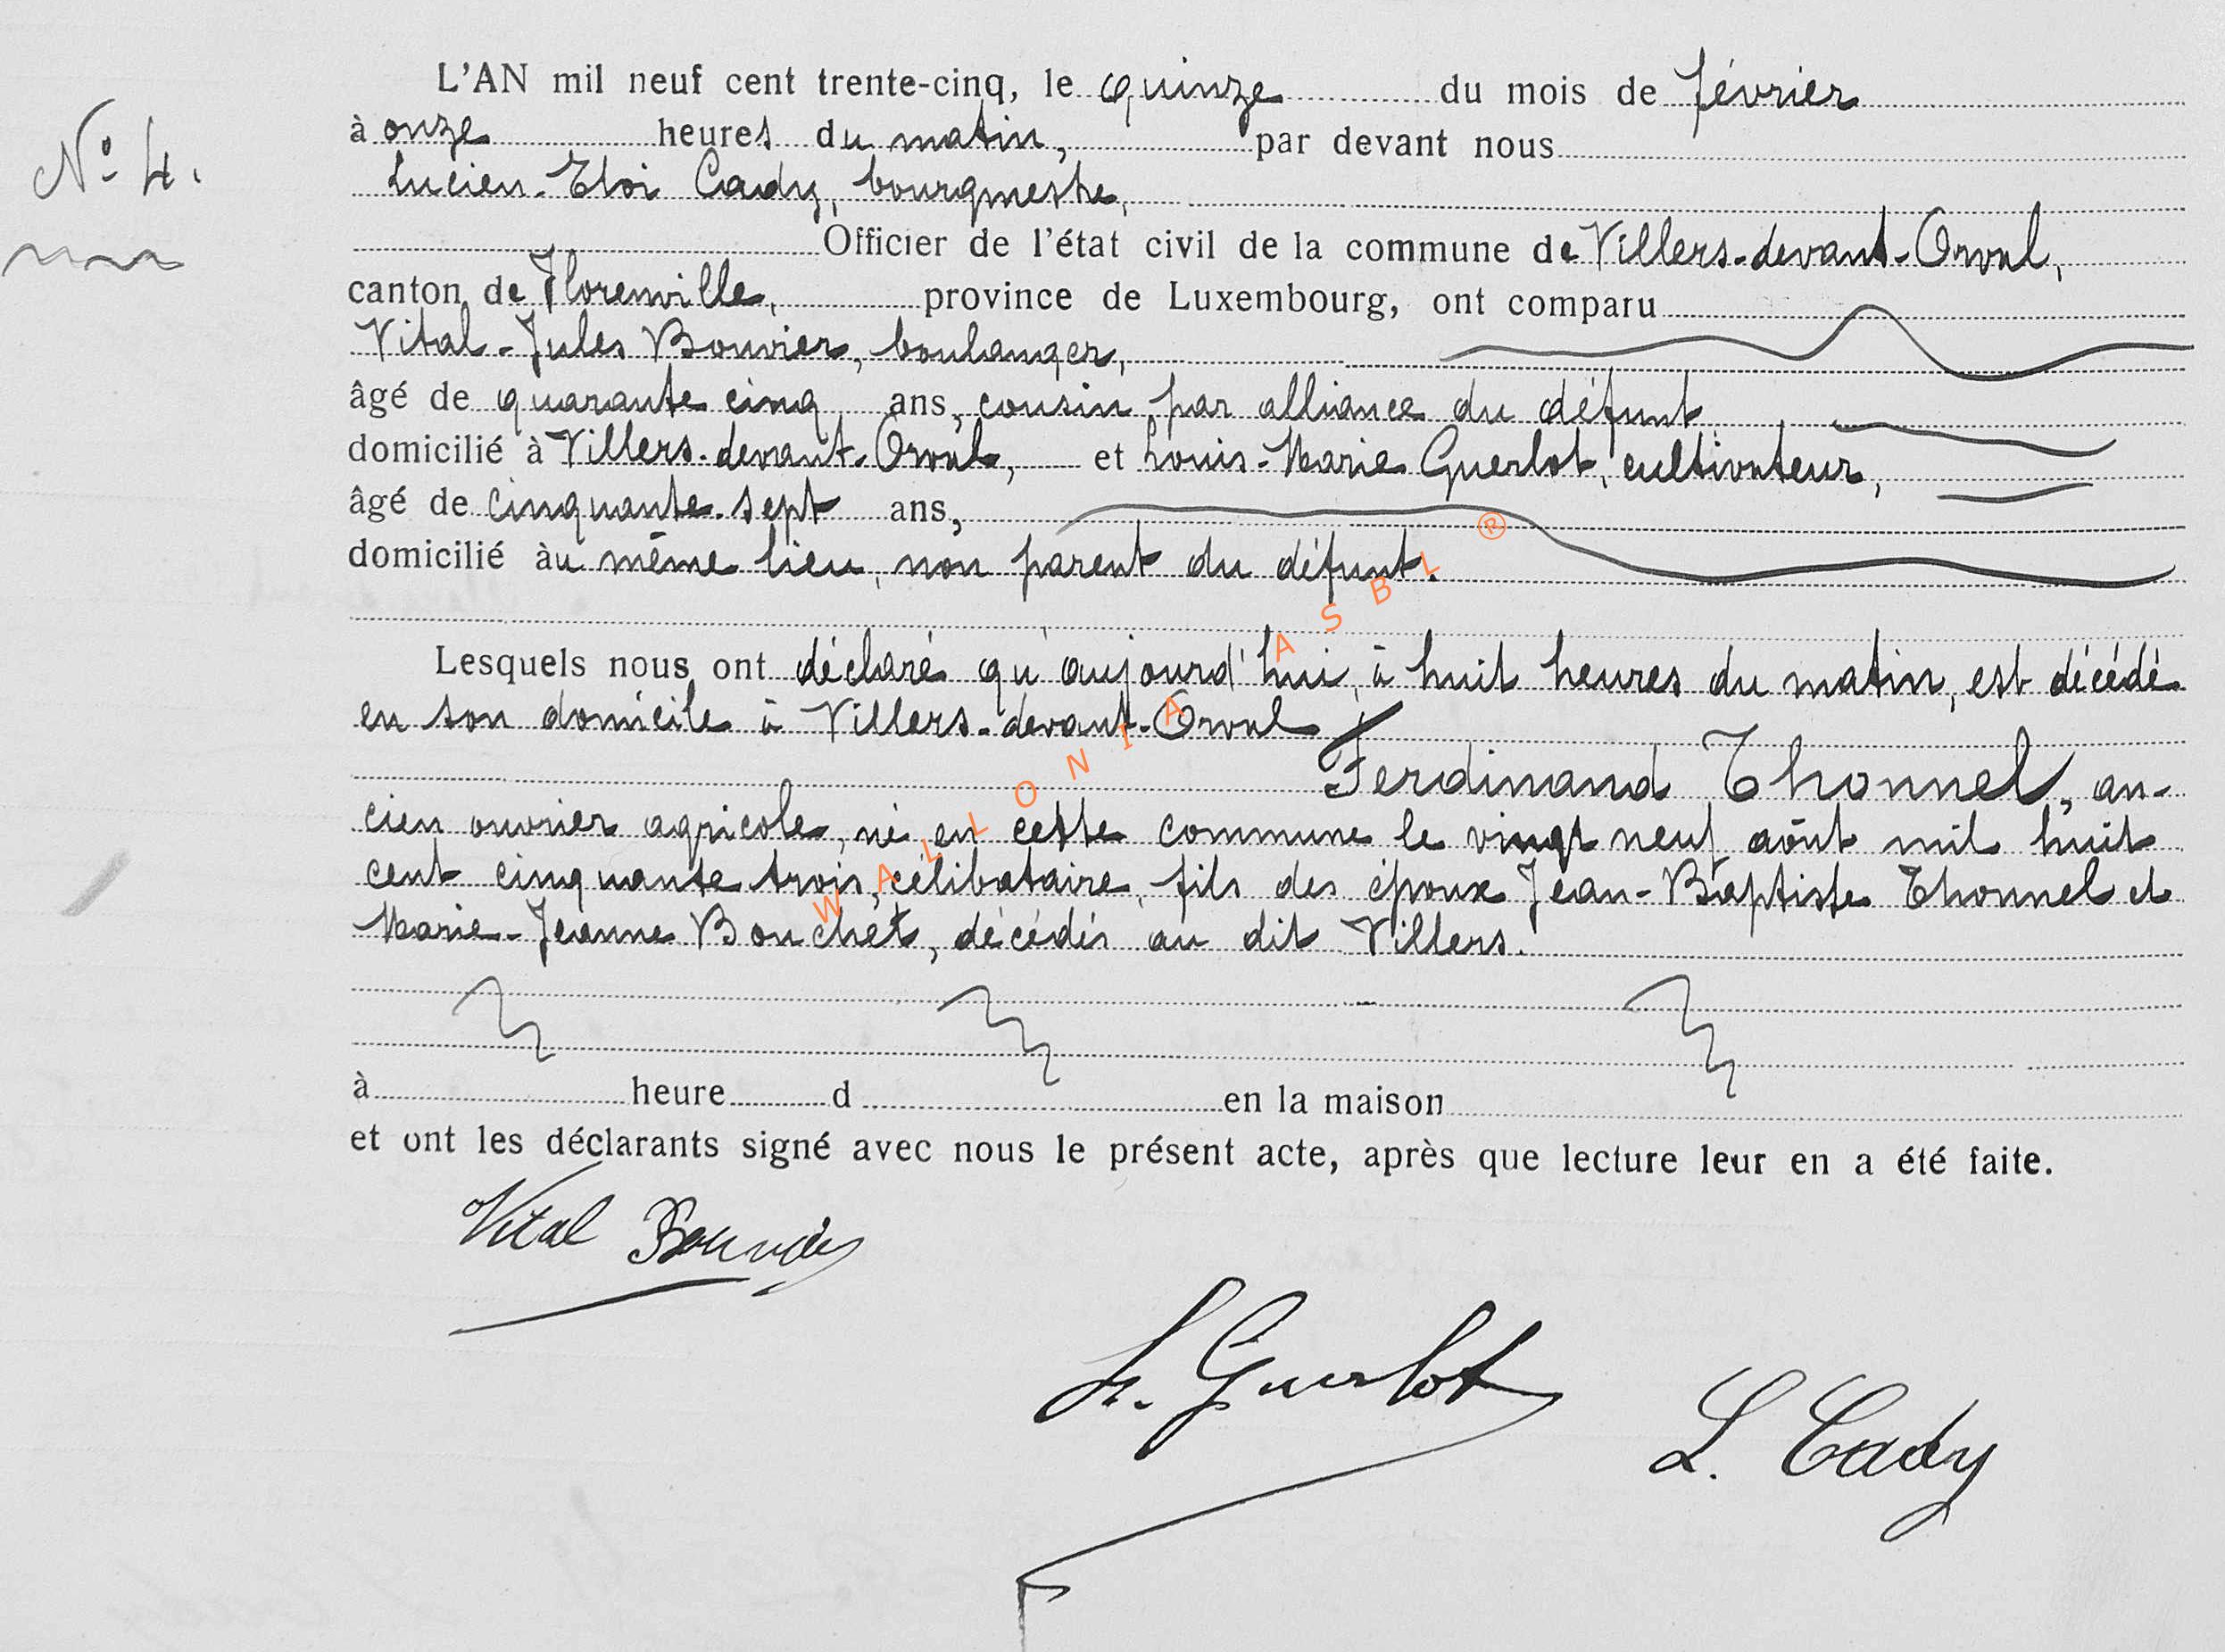 L'AN mil neuf cent trente-cinq, le quinze du mois de février
à onze heures du matin, par devant nous
N° 4.
Lucien-Eloi Cady, bourgmestre,
Officier de l'état civil de la commune de Villers-devant-Orval,
canton de Florenville, province de Luxembourg, ont comparu
Vital-Jules Bouvier, boulanger,
âgé de quarante cinq ans, cousin par alliance du défunt
domicilié à Villers-devant-Orval, et Louis-Marie Guerlot, cultivateur,
âgé de cinquante-sept ans,
domicilié àu même lieu, non parent du défunt.
Lesquels nous ont déclaré qu'aujourd'hui, à huit heures du matin, est décédé
en son domicile à Villers-devant-Orval
Ferdinand Thonnel, an-
cien ouvrier agricole, né en cette commune le vingt neuf août mil huit
cent cinquante trois, célibataire, fils des époux Jean-Baptiste Thonnel et
Marie-Jeanne Bouchet, décédés au dit Villers.
à heure d en la maison
et ont les déclarants signé avec nous le présent acte, après que lecture leur en a été faite.
Vital Bouvier
L. Guerlot
L. Cady
WALLONIA ASBL ®